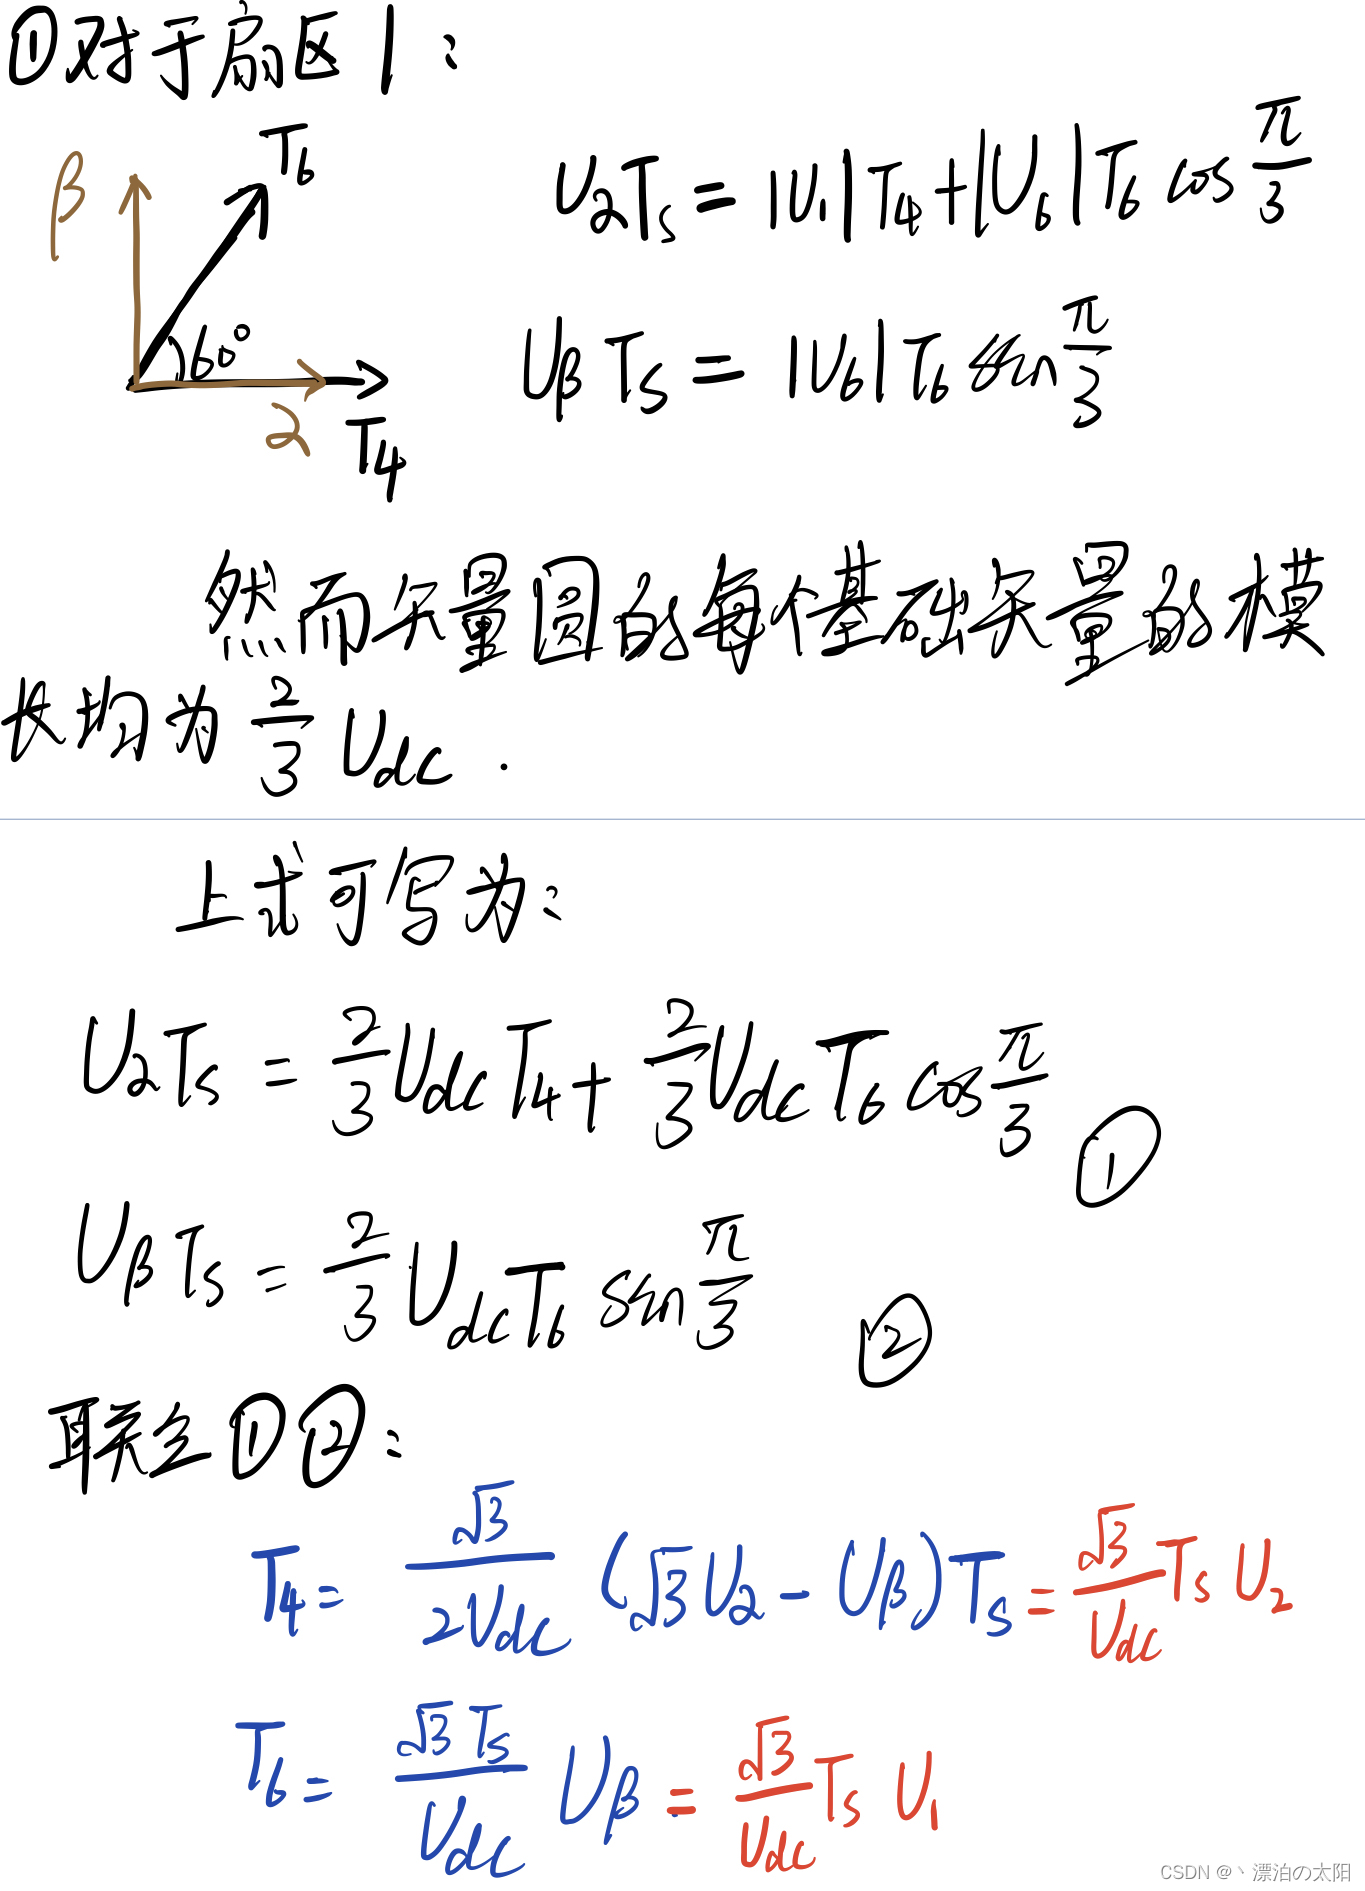 ①对于扇区1:
β
T₆
60°
α
T₄
UαTs = |U₁|T₄+|U₆|T₆ cos π/3
UβTs = |U₆|T₆ sin π/3
然而矢量圆的每个基础矢量的模
长均为 2/3 Udc .
上式可写为:
UαTs = 2/3 UdcT₄+ 2/3 UdcT₆ cos π/3 ①
UβTs = 2/3 UdcT₆ sin π/3 ②
联立①②:
T₄= √3/2Udc (√3Uα - Uβ)Ts = √3/Udc Ts U₂
T₆= √3Ts/Udc Uβ = √3/Udc Ts U₁
CSDN @丶漂泊の太阳